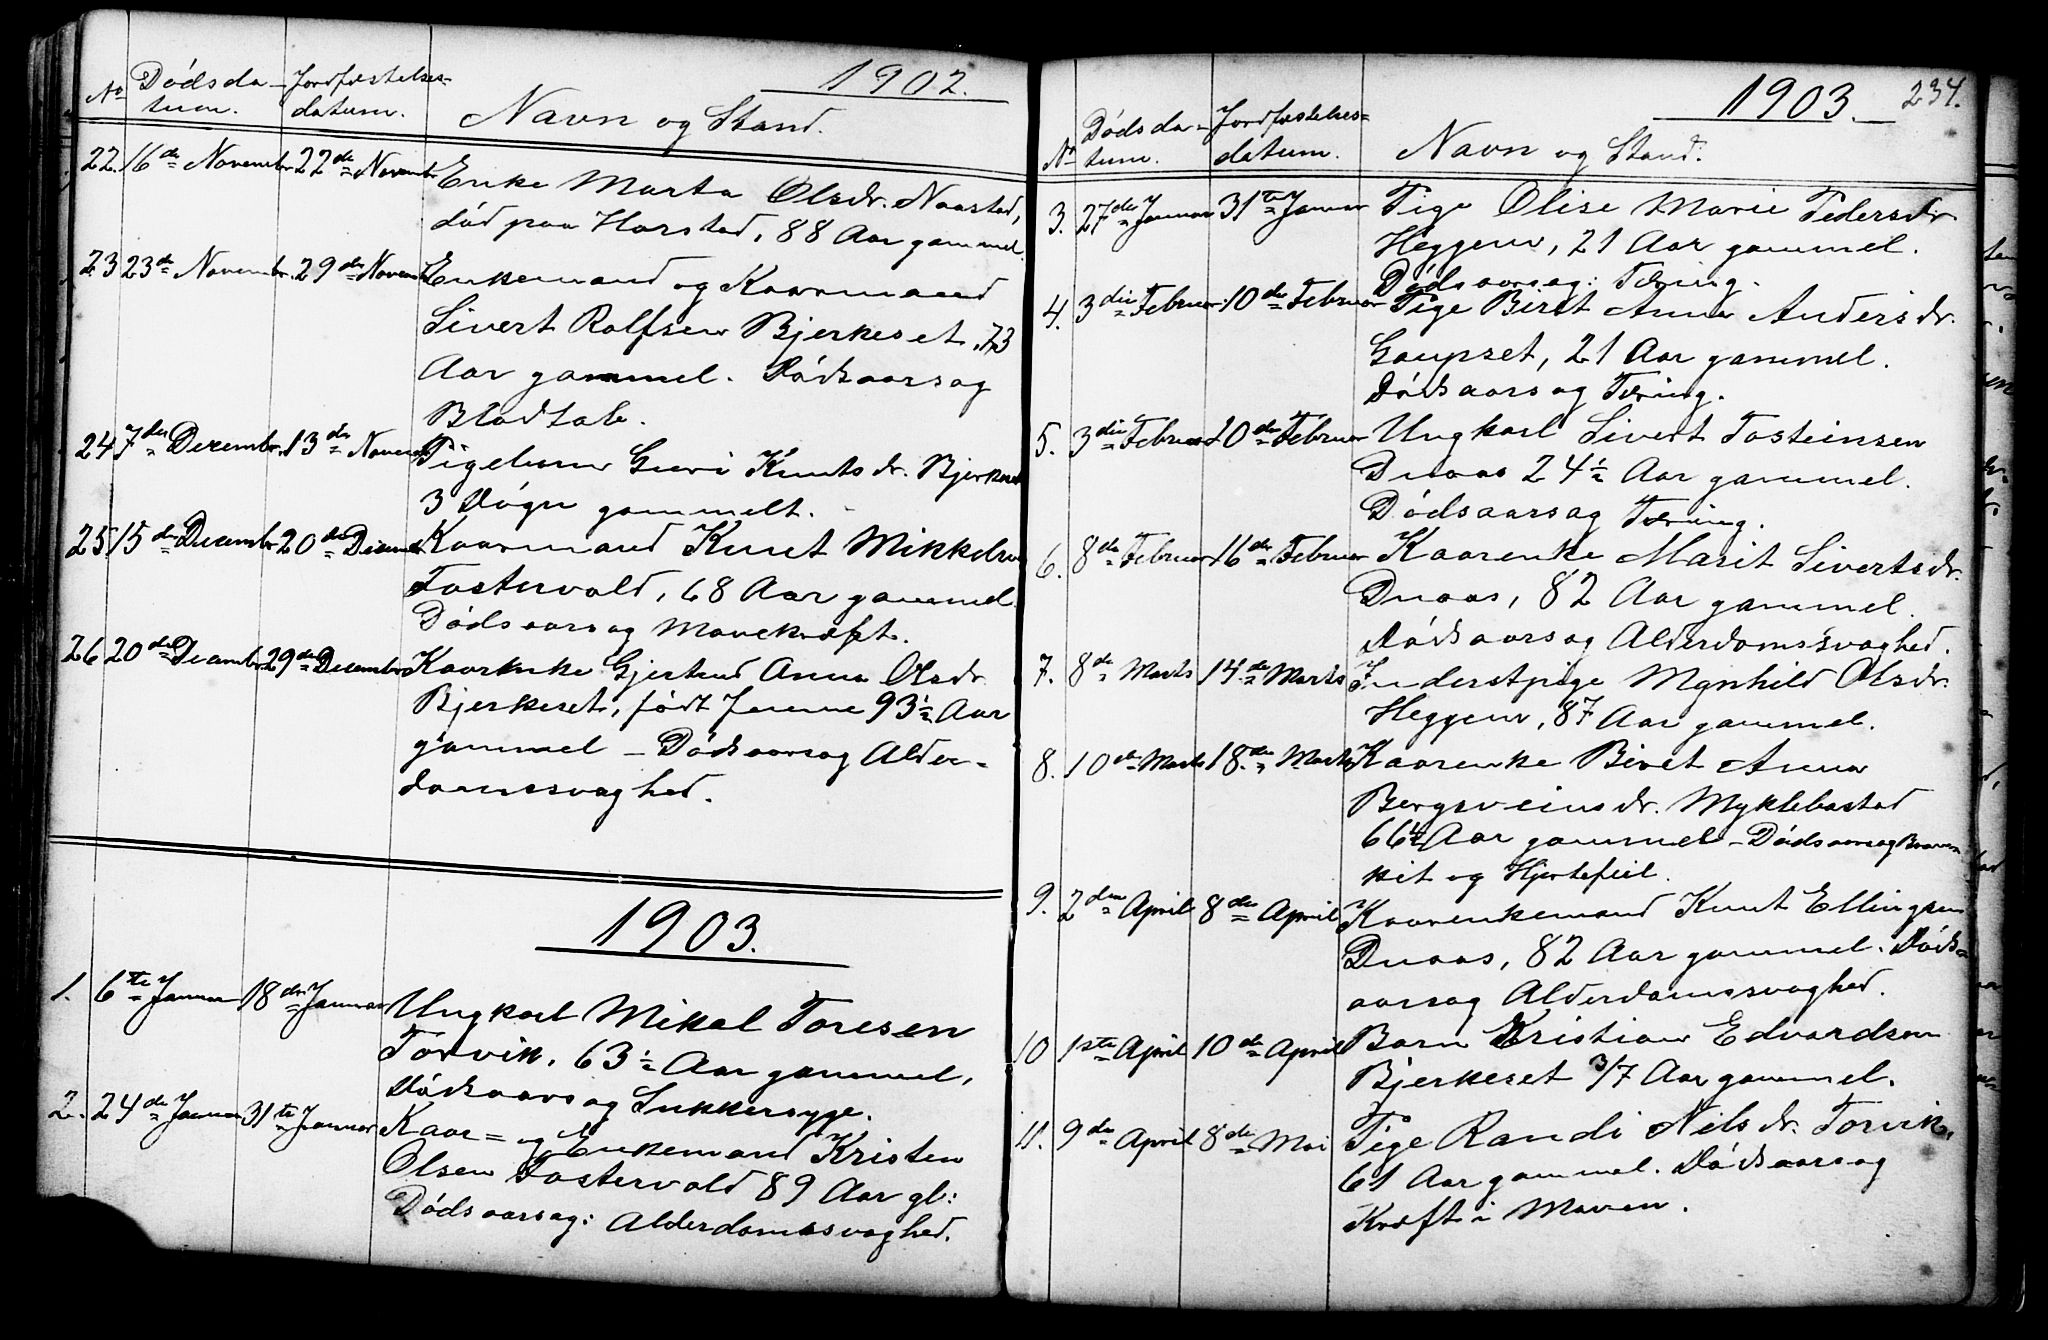 1902.
No Dödsda- Jordfæstelses-
tum. datum. Navn og Stand.
22. 16de Novembr 22de Novembr Enke Marta Olsdr. Naastad,
död paa Harstad, 88 Aar gammel.
23 23de Novembr. 29de Novembr Enkemand og Kaarmand
Sivert Rolfsen Bjerkeset, 73
Aar gammel. Dödsaarsag
Blodtab.
24 7de Decembr. 13de Novembr Pigebarn Guri Knutsdr. Bjerkeset
3 Dögn gammelt.
25 15de Decembr 20de Decembr Kaarmand Knut Mikkelsen
Tostervold, 68 Aar gammel.
Dödsaarsag Mavekræft.
26 20de Decembr 29de Decembr Kaarenke Gjertrud Anna Olsdr.
Bjerkeset, födt 93½ Aar
gammel – Dödsaarsag Alder-
domssvaghed.
1903.
1. 6te Januar 18de Januar Ungkarl Mikal Toresen
Torvik, 63½ Aar gammel,
Dödsaarsag Sukkersyge.
2. 24de Januar 31te Januar Kaar= og Enkemand Kristen
Olsen Tostervold 89 Aar gl:
Dödsaarsag: Alderdomssvaghed.
1903. 234.
No Dödsda- Jordfæstelses-
tum. datum. Navn og Stand.
3. 27de Januar 31te Januar Pige Olise Marie Pedersdr.
Heggem, 21 Aar gammel.
Dödsaarsag: Tæring.
4. 3die Februar 10de Februar Pige Beret Anna Andersdr.
Gaupset, 21 Aar gammel.
Dödsaarsag Tæring.
5. 3die Februar 10de Februar Ungkarl Sivert Tosteinsen
Duaas 24½ Aar gammel.
Dödsaarsag Tæring.
6. 8de Februar 16de Februar Kaarenke Marit Sivertsdr.
Duaas, 82 Aar gammel.
Dödsaarsag Alderdomssvaghed.
7. 8de Marts 14de Marts Inderstpige Magnhild Olsdr.
Heggem, 87 Aar gammel.
8. 10de Marts 18de Marts Kaarenke Beret Anna
Bergsveinsdr. Myklebostad
66½ Aar gammel – Dödsaarsag
og Hjertefeil.
9. 2den April 8de April Kaarenkemand Knut Ellingsen
Duaas, 82 Aar gammel. Döds-
aarsag Alderdomssvaghed.
10 1ste April 10de April Barn Kristian Edvardsen
Bjerkeset 3/7 Aar gammel.
11. 9de April 8de Mai Pige Randi Nilsdr. Torvik,
61 Aar gammel. Dödsaarsag
Kræft i Maven.